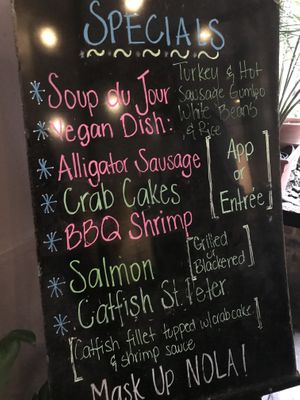 SPECIALS
* Soup du Jour Turkey & Hot Sausage Gumbo
* Vegan Dish: White Beans & Rice
* Alligator Sausage
* Crab Cakes
* BBQ Shrimp
[App or Entrée]
* Salmon [Grilled or Blackened]
* Catfish St. Peter
[Catfish fillet topped w/crabcake
& shrimp sauce]
Mask Up NOLA!